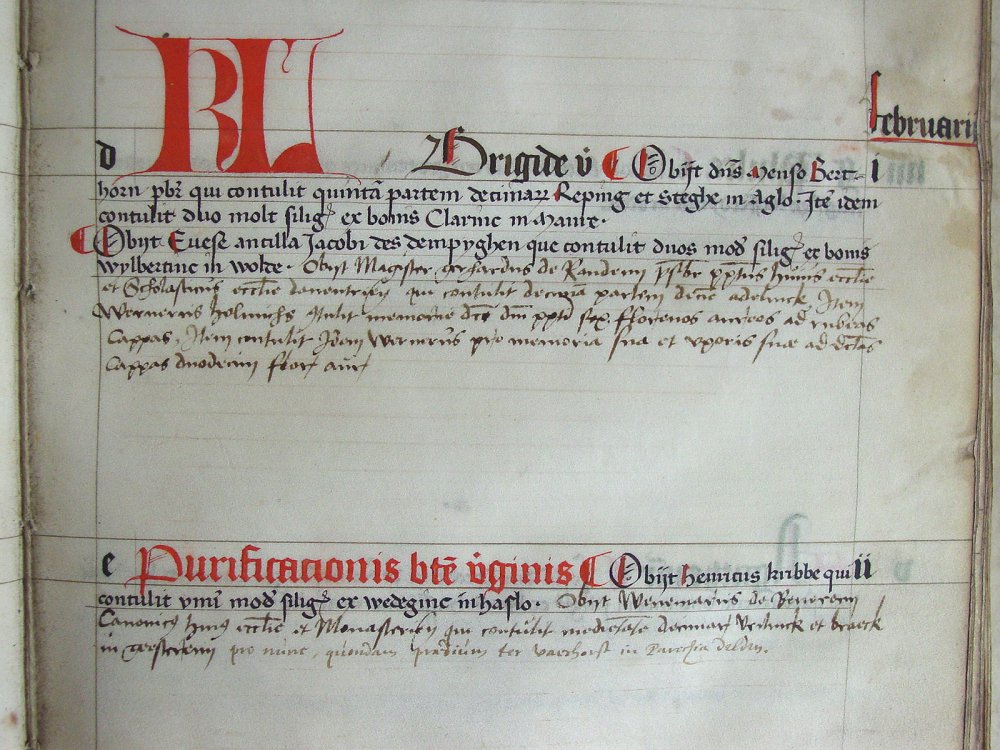 KL
februarij
d Brigide v̇ Obijt dn̄s Menso Bert- i
horn pbr̄ qui contulit quintā partem decimarꝝ Reping et Steghe in Aglo. Itē idem
contulit duo molt siligꝭ ex bonis Clarinc in
Obijt Euese ancilla Jacobi des dempyghen que contulit duos mod̄ siligꝭ ex bonis
wylbertinc in wolde. Obijt Magister gerhardus de Randenn pptus huius ecclīe
et Scholasticus ecclīe dauentrien̄ qui contulit decimā partem decīe adelinck Item
Wernerus holinchs memorie dn̄i ppti sex florenos aureos ad rubeas
Cappas. Item contulit Idem Wernerus pro memoria sua et vxoris suæ ad dictas
Cappas duodecim flor aur
e Purificacionis btē v̇ginis Obijt henricus kribbe qui ii
contulit vnū mod̄ siligꝭ ex wedeginc in haslo. Obijt Wenemarus de
Canonicus huius ecclīe et Monasterien̄ qui contulit medietatē et braeck
in pro nunc, quondam predium ter vaerhorst in Parochia delden.